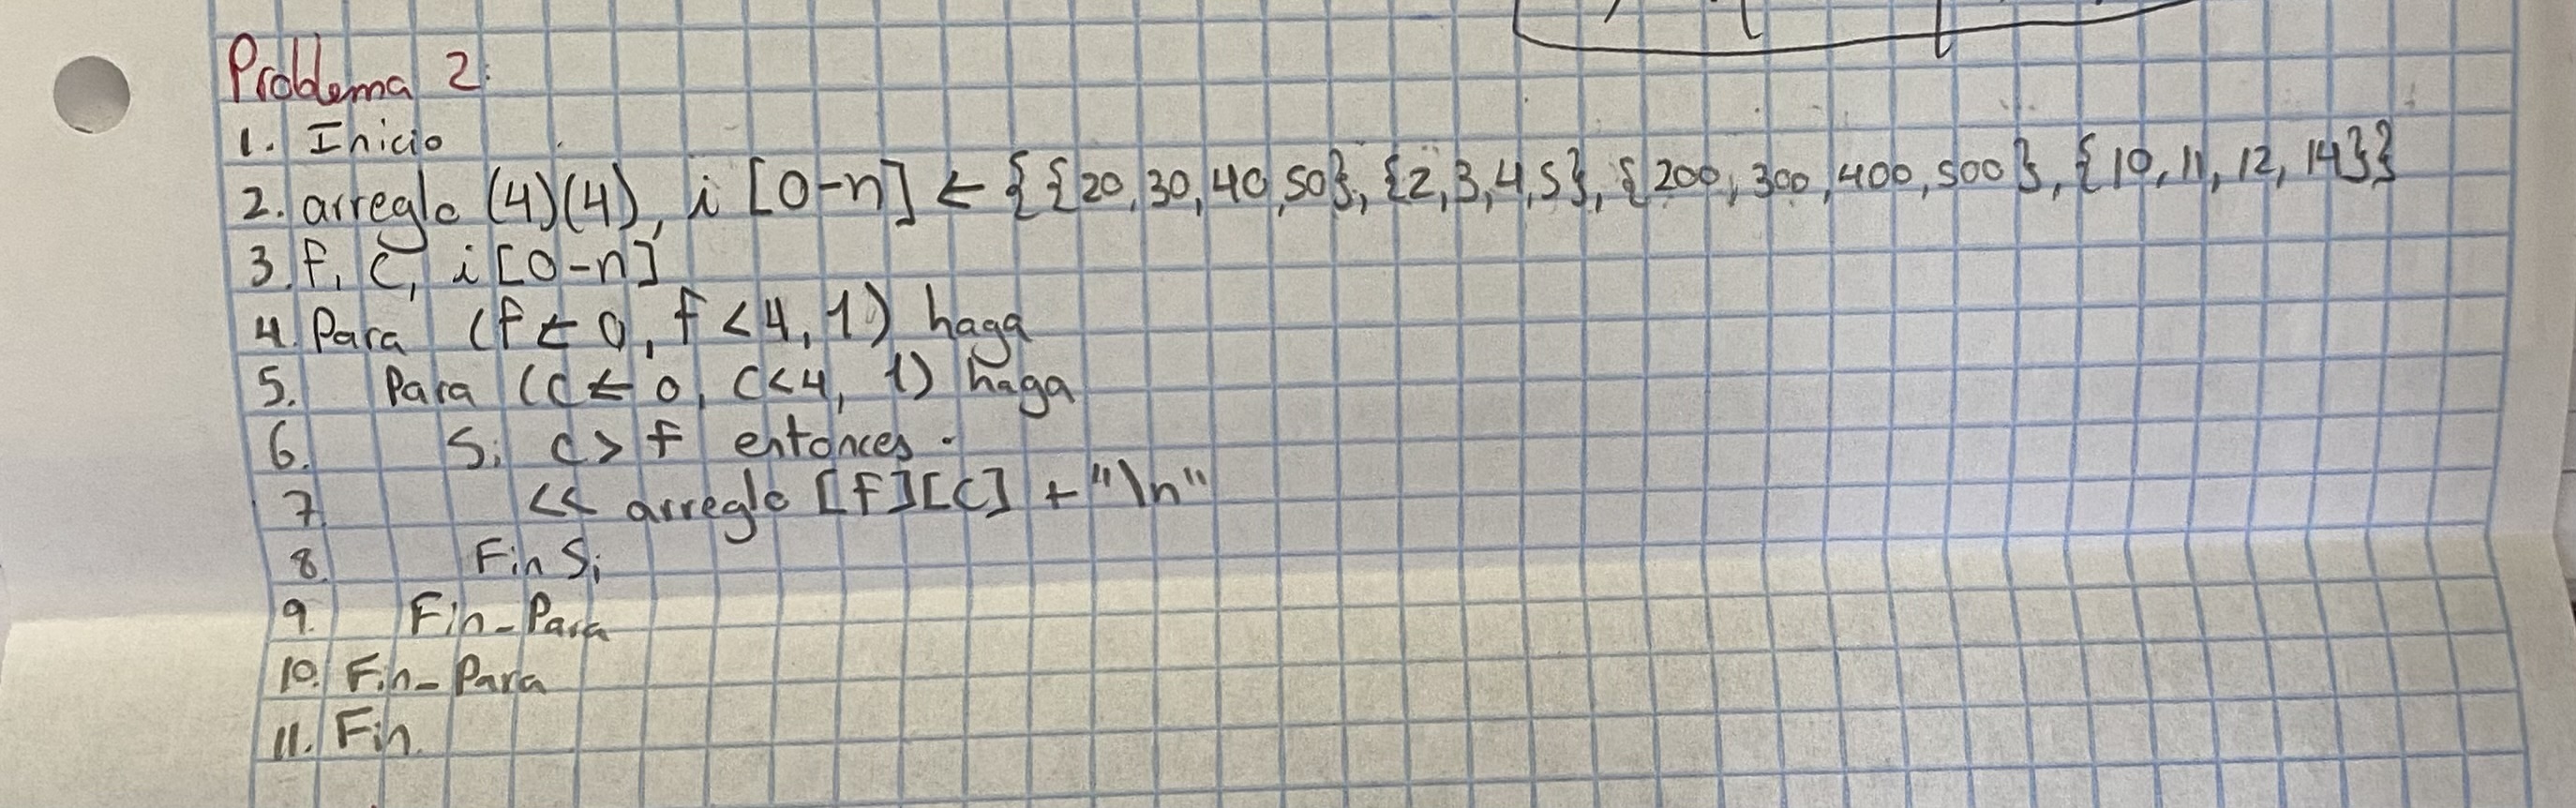 Problema 2:
1. Inicio
2. arreglo (4)(4), i [0-n] ← {{20,30,40,50}, {2,3,4,5}, {200,300,400,500}, {10,11,12,14}}
3. f, c, i [0-n]
4. Para (f ← 0, f < 4, 1) haga
5. Para (c ← 0, c < 4, 1) haga
6. Si c > f entonces
7 << arreglo [f][c] + "\n"
8. Fin Si
9. Fin-Para
10. Fin-Para
11. Fin.